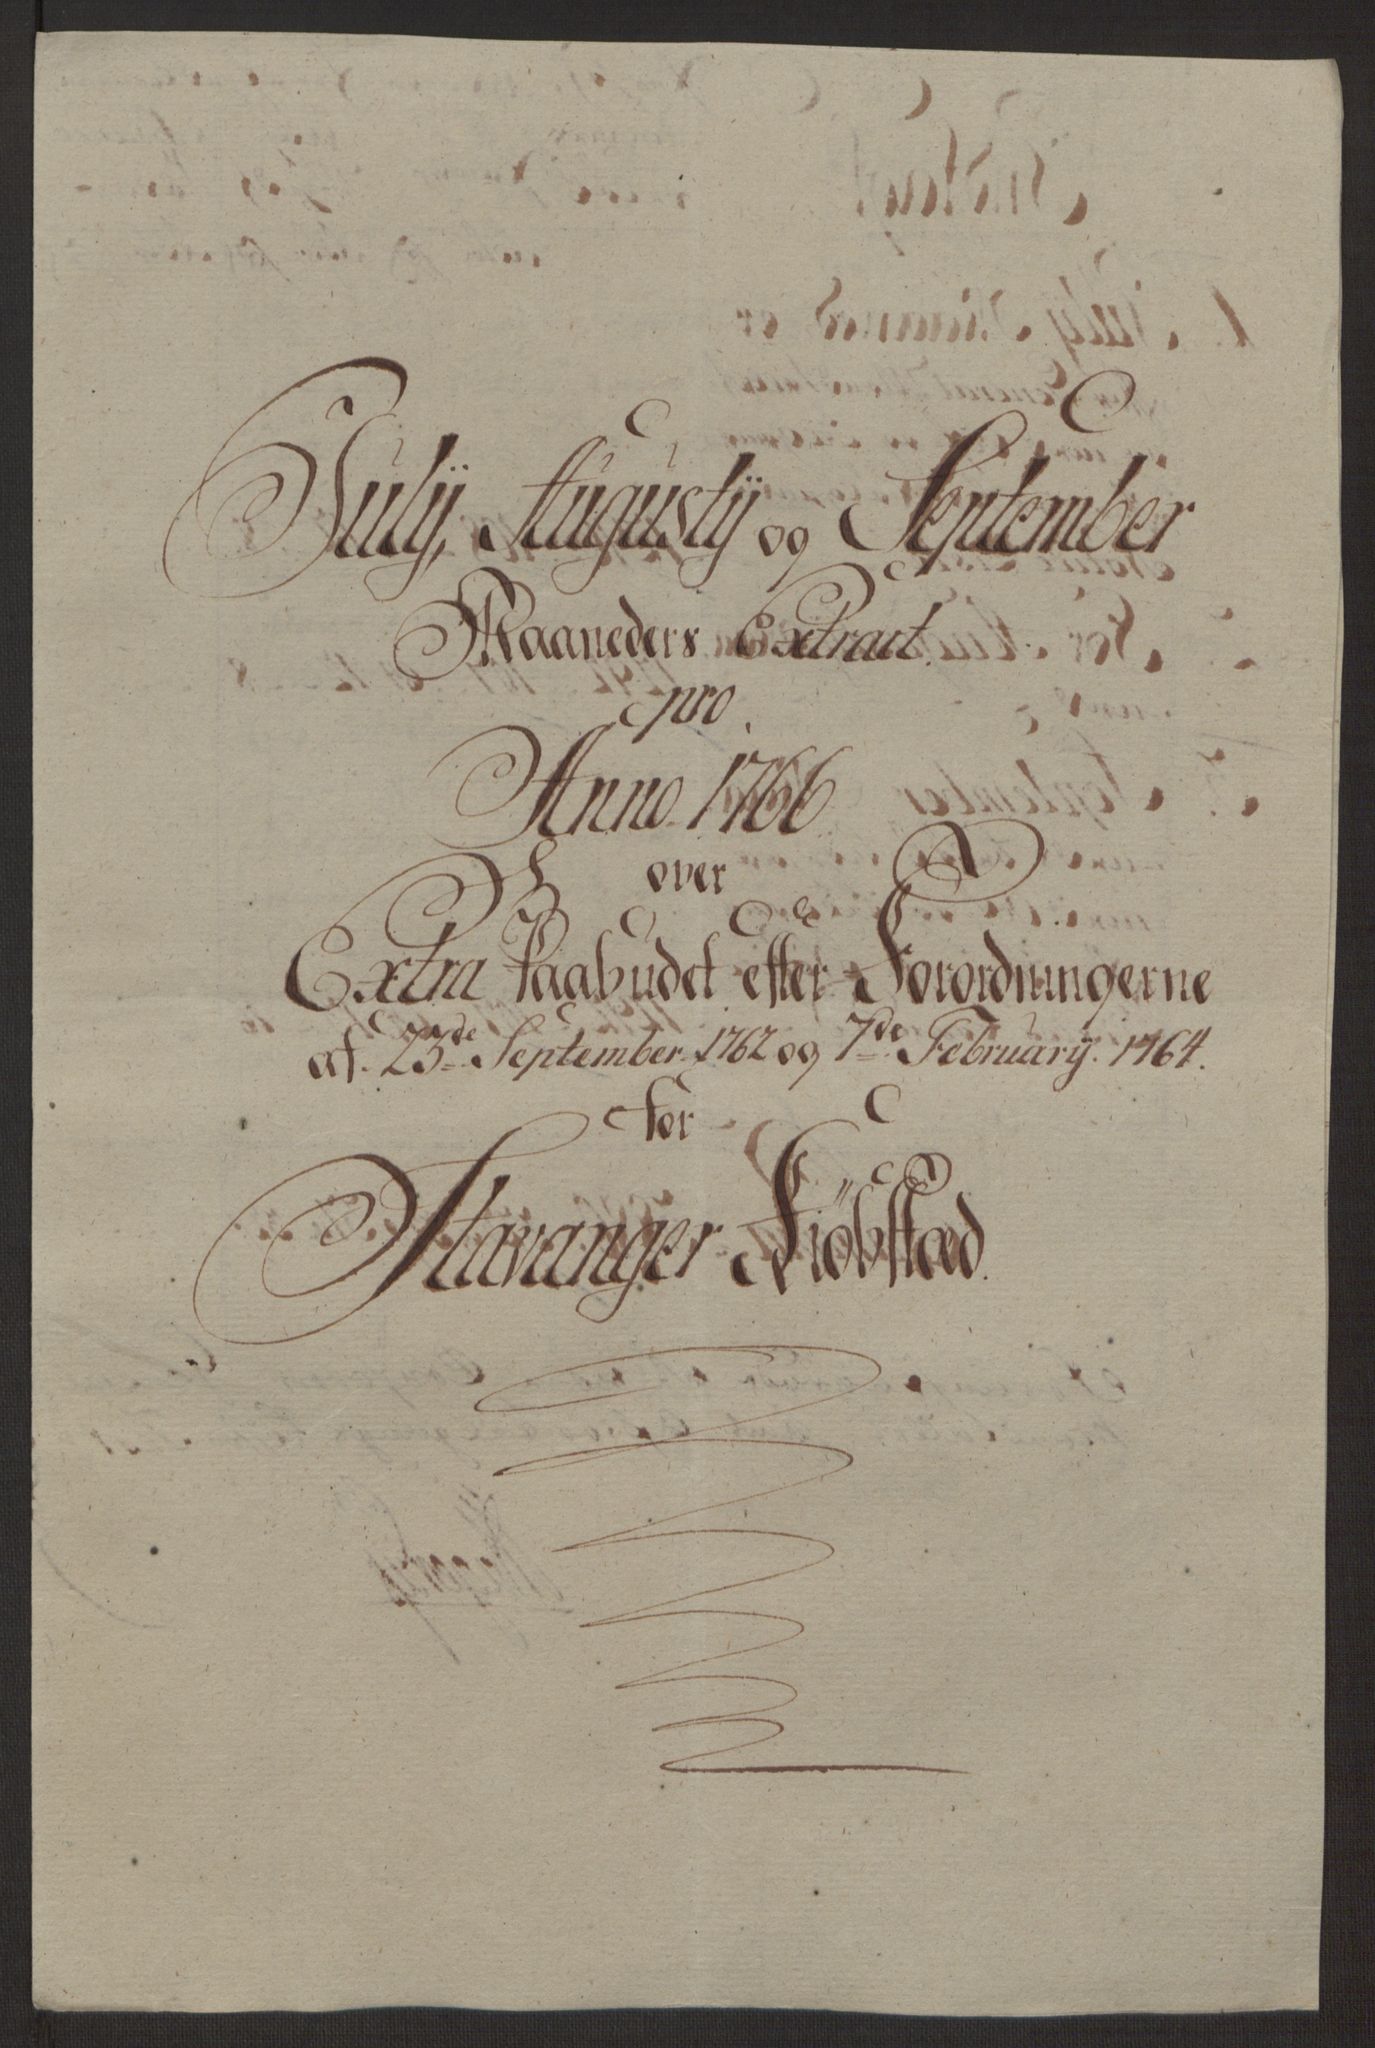 Julij, Augustij og September
Maaneders Extract.
pro.
Anno 1766
over
Extra Paabudet efter Forordningerne
af. 23de September. 1762 og 7de February. 1764.
for
Stavanger Kiöbstæd.